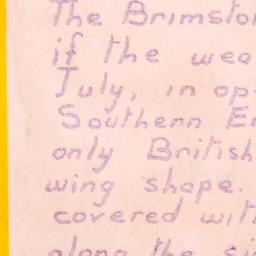 The Brimsto
if the wea
July, in op
Southern E
only British
wing shape.
covered wit
along the si